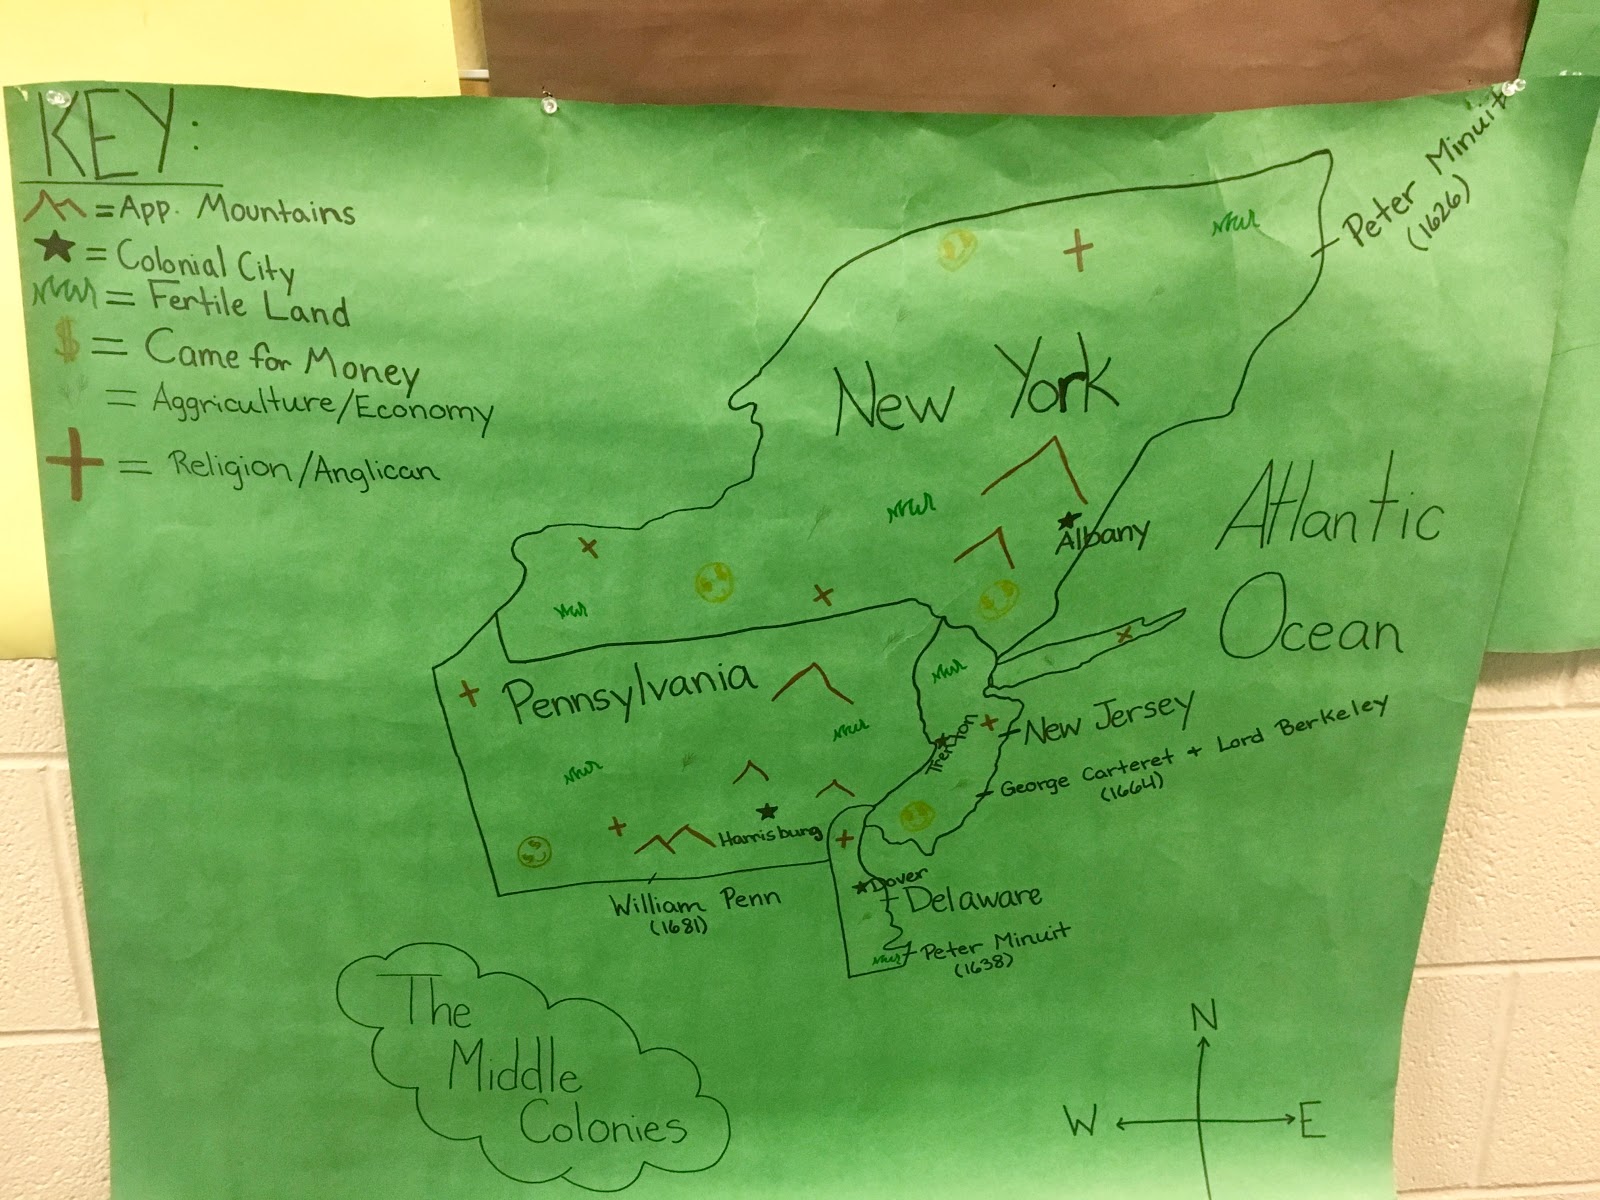 KEY:
= App. Mountains
= Colonial City
= Fertile Land
$ = Came for Money
= Aggriculture/Economy
= Religion/Anglican
Peter Minuit
(1626)
New York
Albany
Atlantic
Ocean
Pennsylvania
Harrisburg
William Penn
(1681)
New Jersey
George Carteret + Lord Berkeley
(1664)
Dover
Delaware
Peter Minuit
(1638)
The
Middle
Colonies
N
W
E